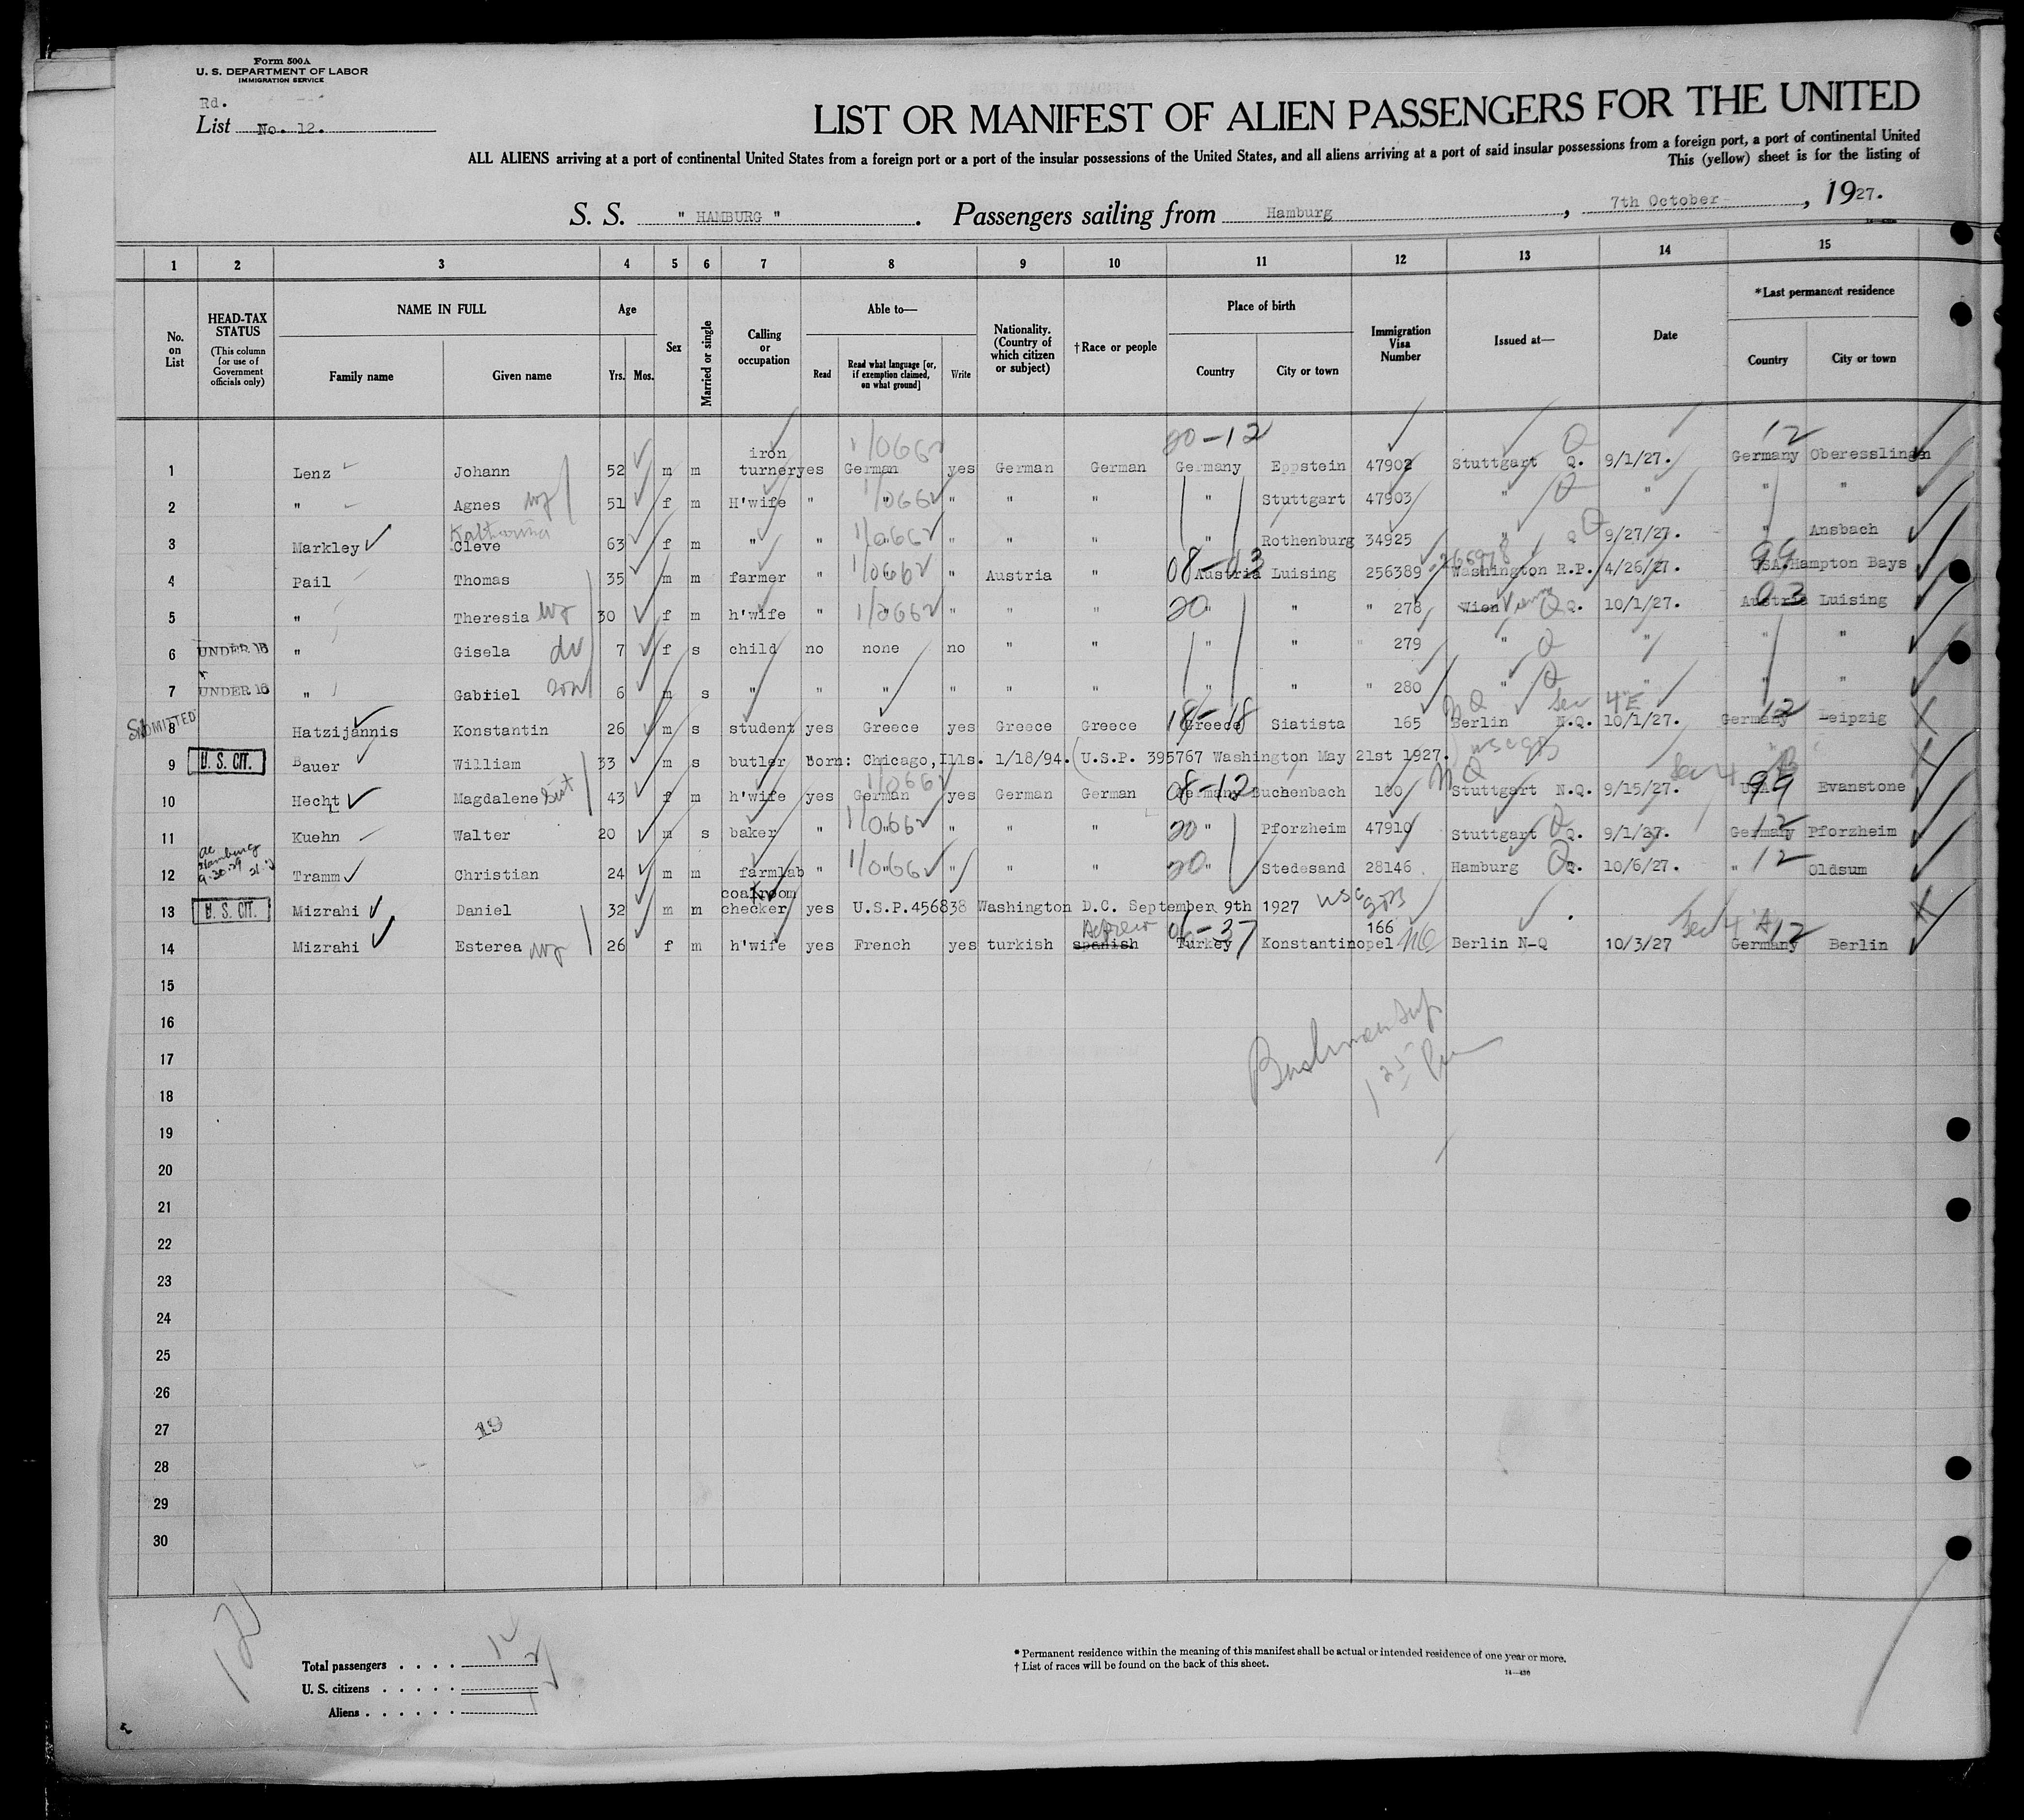 Form 500A
U. S. DEPARTMENT OF LABOR
IMMIGRATION SERVICE
Rd.
List No. 12.
LIST OR MANIFEST OF ALIEN PASSENGERS FOR THE UNITED
ALL ALIENS arriving at a port of continental United States from a foreign port or a port of the insular possessions of the United States, and all aliens arriving at a port of said insular possessions from a foreign port, a port of continental United
This (yellow) sheet is for the listing of
S. S. " HAMBURG " . Passengers sailing from Hamburg , 7th October , 1927.
1 2 3 4 5 6 7 8 9 10 11 12 13 14 15
No. on List
HEAD-TAX STATUS
(This column for use of Government officials only)
NAME IN FULL
Family name Given name
Age
Yrs. Mos.
Sex
Married or single
Calling or occupation
Able to—
Read Read what language [or, if exemption claimed, on what ground] Write
Nationality. (Country of which citizen or subject)
†Race or people
Place of birth
Country City or town
Immigration Visa Number
Issued at—
Date
*Last permanent residence
Country City or town
20-12 12
1 Lenz Johann 52 m m iron turner yes German 1/0662 yes German German Germany Eppstein 47902 Stuttgart Q. Q 9/1/27. Germany Oberesslingen
2 " Agnes wf 51 f m H'wife " " 1/0662 " " " " Stuttgart 47903 " Q " " "
3 Markley Katharina Cleve 63 f m " " " 1/0662 " " " Rothenburg 34925 " Q Q 9/27/27. " Ansbach
4 Pail Thomas 35 m m farmer " " 1/0662 " Austria " 08-03 Austria Luising 256389 Washington R.P. 4/26/27. 99 USA. Hampton Bays
5 " Theresia wf 30 f m h'wife " " 1/0662 " " " 20 " " " 278 Wien Vienna Q Q. 10/1/27. 03 Austria Luising
6 UNDER 16 " Gisela 7 f s child no none no " " " " " 279 " Q " " "
7 UNDER 16 " Gabriel son 6 m s " " " " " " " " " 280 " Q " " "
8 ADMITTED Hatzijannis Konstantin 26 m s student yes Greece yes Greece Greece 18-18 Greece Siatista 165 Berlin N.Q. NQ Sec 4 E 10/1/27. 12 Germany Leipzig
9 U. S. CIT. Bauer William 33 m s butler Born: Chicago, Ills. 1/18/94. (U.S.P. 395767 Washington May 21st 1927.)
10 Hecht Magdalene 43 f m h'wife yes German 1/0662 yes German German 08-12 Germany Buchenbach 160 NQ Stuttgart N.Q. 9/15/27. Sec 4 B 99 USA Evanstone
11 Kuehn Walter 20 m s baker " " 1/0662 " " " 20 " Pforzheim 47910 Stuttgart Q Q. 9/1/27. 12 Germany Pforzheim
12 Tramm Christian 24 m m farmlab " " 1/0662 " " " 20 " Stedesand 28146 Hamburg Q Q. 10/6/27. " 12 Oldsum
13 U. S. CIT. Mizrahi Daniel 32 m m coalroom checker yes U.S.P.456838 Washington D.C. September 9th 1927
14 Mizrahi Esterea wf 26 f m h'wife yes French yes turkish Hebrew spanish 06-37 Turkey Konstantinopel 166 NQ Berlin N-Q 10/3/27 Sec 4 A 12 Germany Berlin
15
16
17
18
19
20
21
22
23
24
25
26
27
19
28
29
30
Total passengers . . . .
U. S. citizens . . . . .
Aliens . . . . . .
* Permanent residence within the meaning of this manifest shall be actual or intended residence of one year or more.
† List of races will be found on the back of this sheet.